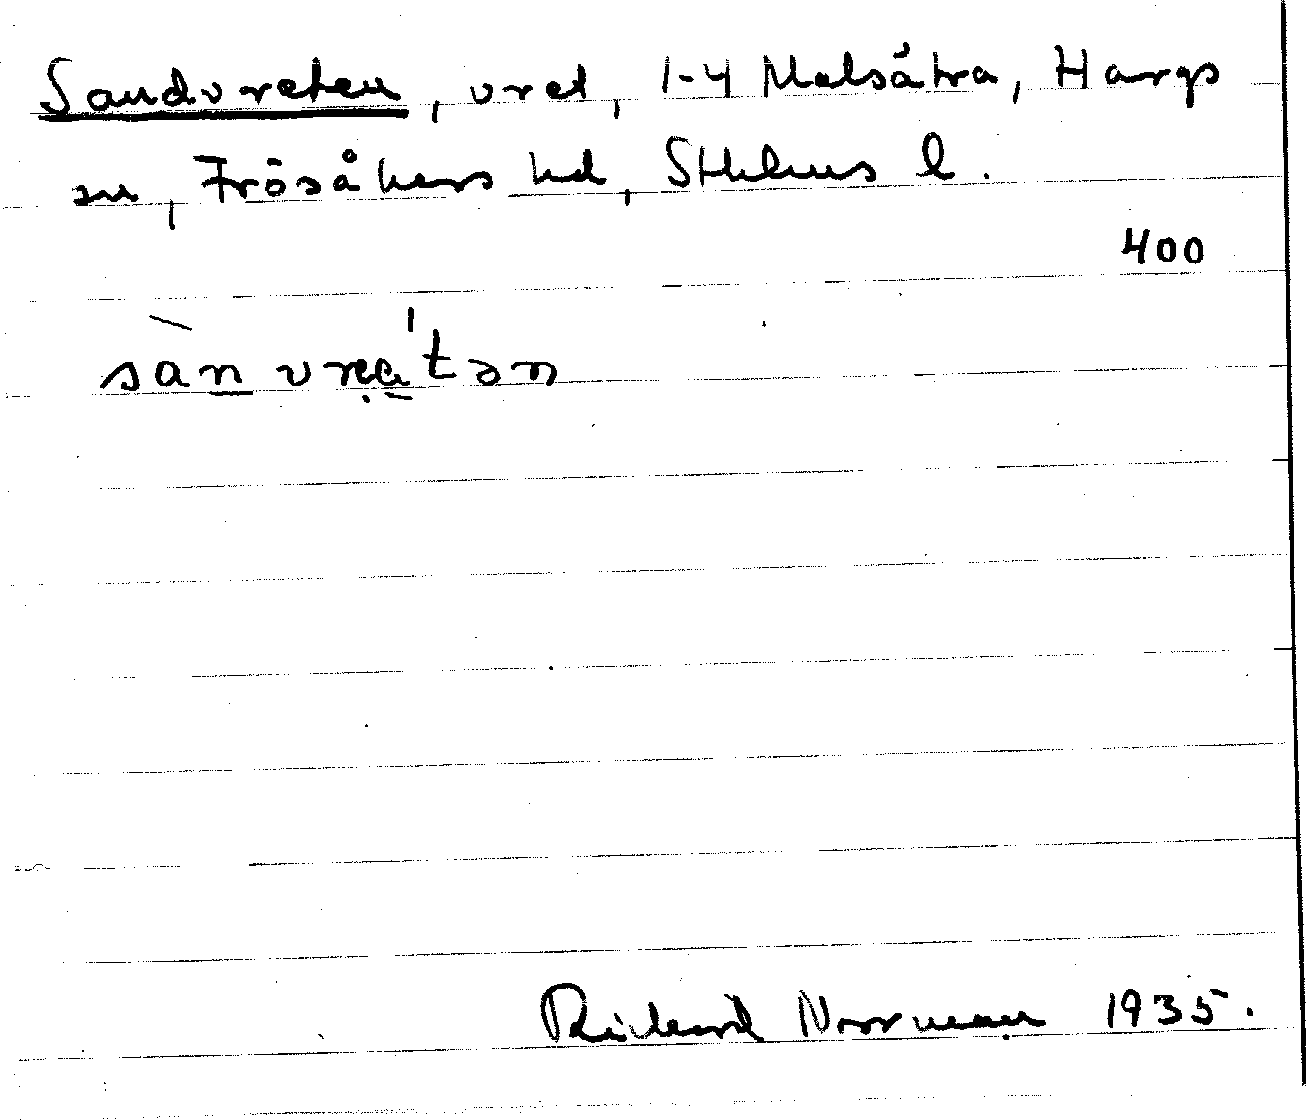 Sandvreten, vret, 1-4 Malsätra, Hargs
sn, Frösåkers hd, Sthlms l.
400
sànvreatən
Richard Norrman 1935.